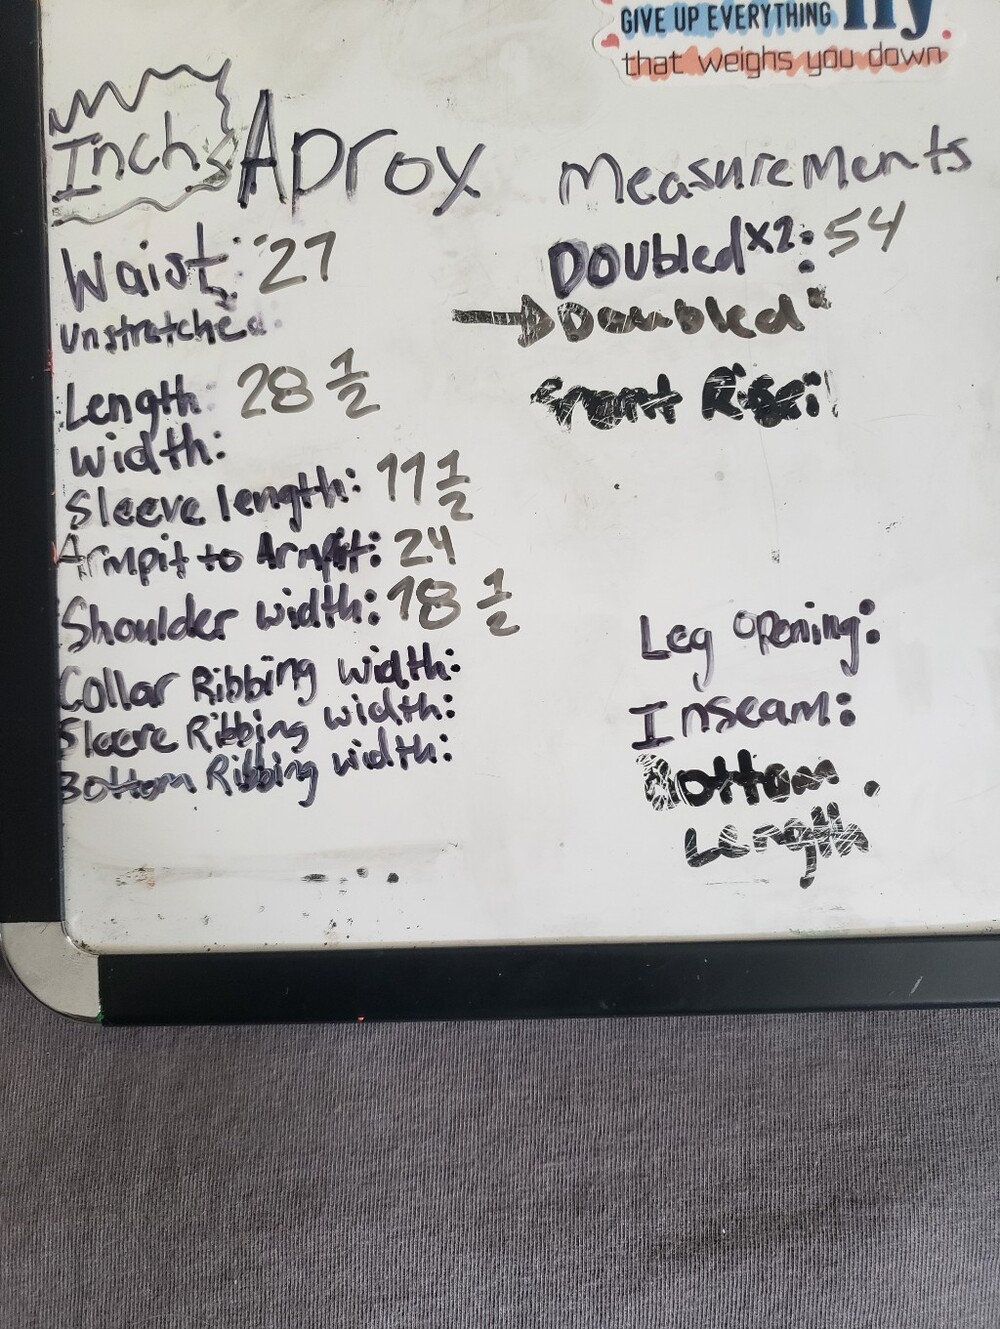 GIVE UP EVERYTHING fly
that weighs you down
Inch Aprox Measurements
Waist: 27 Doubled x2: 54
unstretched Doubled
Length: 28 1/2 Front Rise:
width:
Sleeve length: 11 1/2
Armpit to Armpit: 24
Shoulder width: 18 1/2
Leg opening:
Collar Ribbing width:
Sleeve Ribbing width:
Inseam:
Bottom Ribbing width:
Bottom
Length